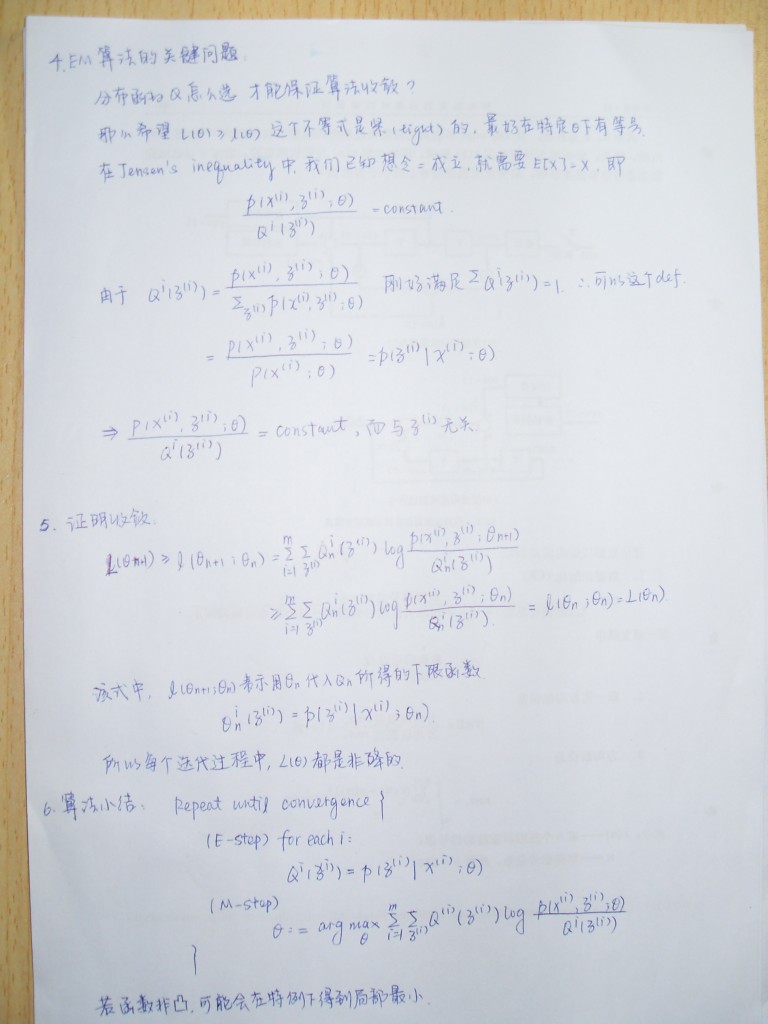 4. EM 算法的关键问题.
分布函数 Q 怎么选 才能保证算法收敛？
那么希望 L(θ) ≥ l(θ) 这个不等式是紧 (tight) 的, 最好在特定θ下有等号.
在 Jensen's inequality 中, 我们已知想令 = 成立, 就需要 E[X] = X. 即
p(x^(i), z^(i); θ) / Q^i(z^(i)) = constant.
由于 Q^i(z^(i)) = p(x^(i), z^(i); θ) / Σ_z^(i) p(x^(i), z^(i); θ) 刚好满足 Σ Q^i(z^(i)) = 1. ∴ 可以这个 def.
= p(x^(i), z^(i); θ) / p(x^(i); θ) = p(z^(i) | x^(i); θ)
⇒ p(x^(i), z^(i); θ) / Q^i(z^(i)) = constant, 而与 z^(i) 无关.
5. 证明收敛.
L(θn+1) ≥ l(θn+1; θn) = Σ_{i=1}^m Σ_z^(i) Q_n^i(z^(i)) log p(x^(i), z^(i); θn+1) / Q_n^i(z^(i))
≥ Σ_{i=1}^m Σ_z^(i) Q_n^i(z^(i)) log p(x^(i), z^(i); θn) / Q_n^i(z^(i)) = l(θn; θn) = L(θn)
该式中, l(θn+1; θn) 表示用θn 代入Qn 所得的下限函数.
θ_n^i(z^(i)) = p(z^(i) | x^(i); θn)
所以每个迭代过程中, L(θ) 都是非降的.
6. 算法小结: Repeat until convergence {
(E-step) for each i:
Q^i(z^(i)) = p(z^(i) | x^(i); θ)
(M-step)
θ := arg max_θ Σ_{i=1}^m Σ_z^(i) Q^(i)(z^(i)) log p(x^(i), z^(i); θ) / Q^i(z^(i))
}
若函数非凸, 可能会在特例下得到局部最小.